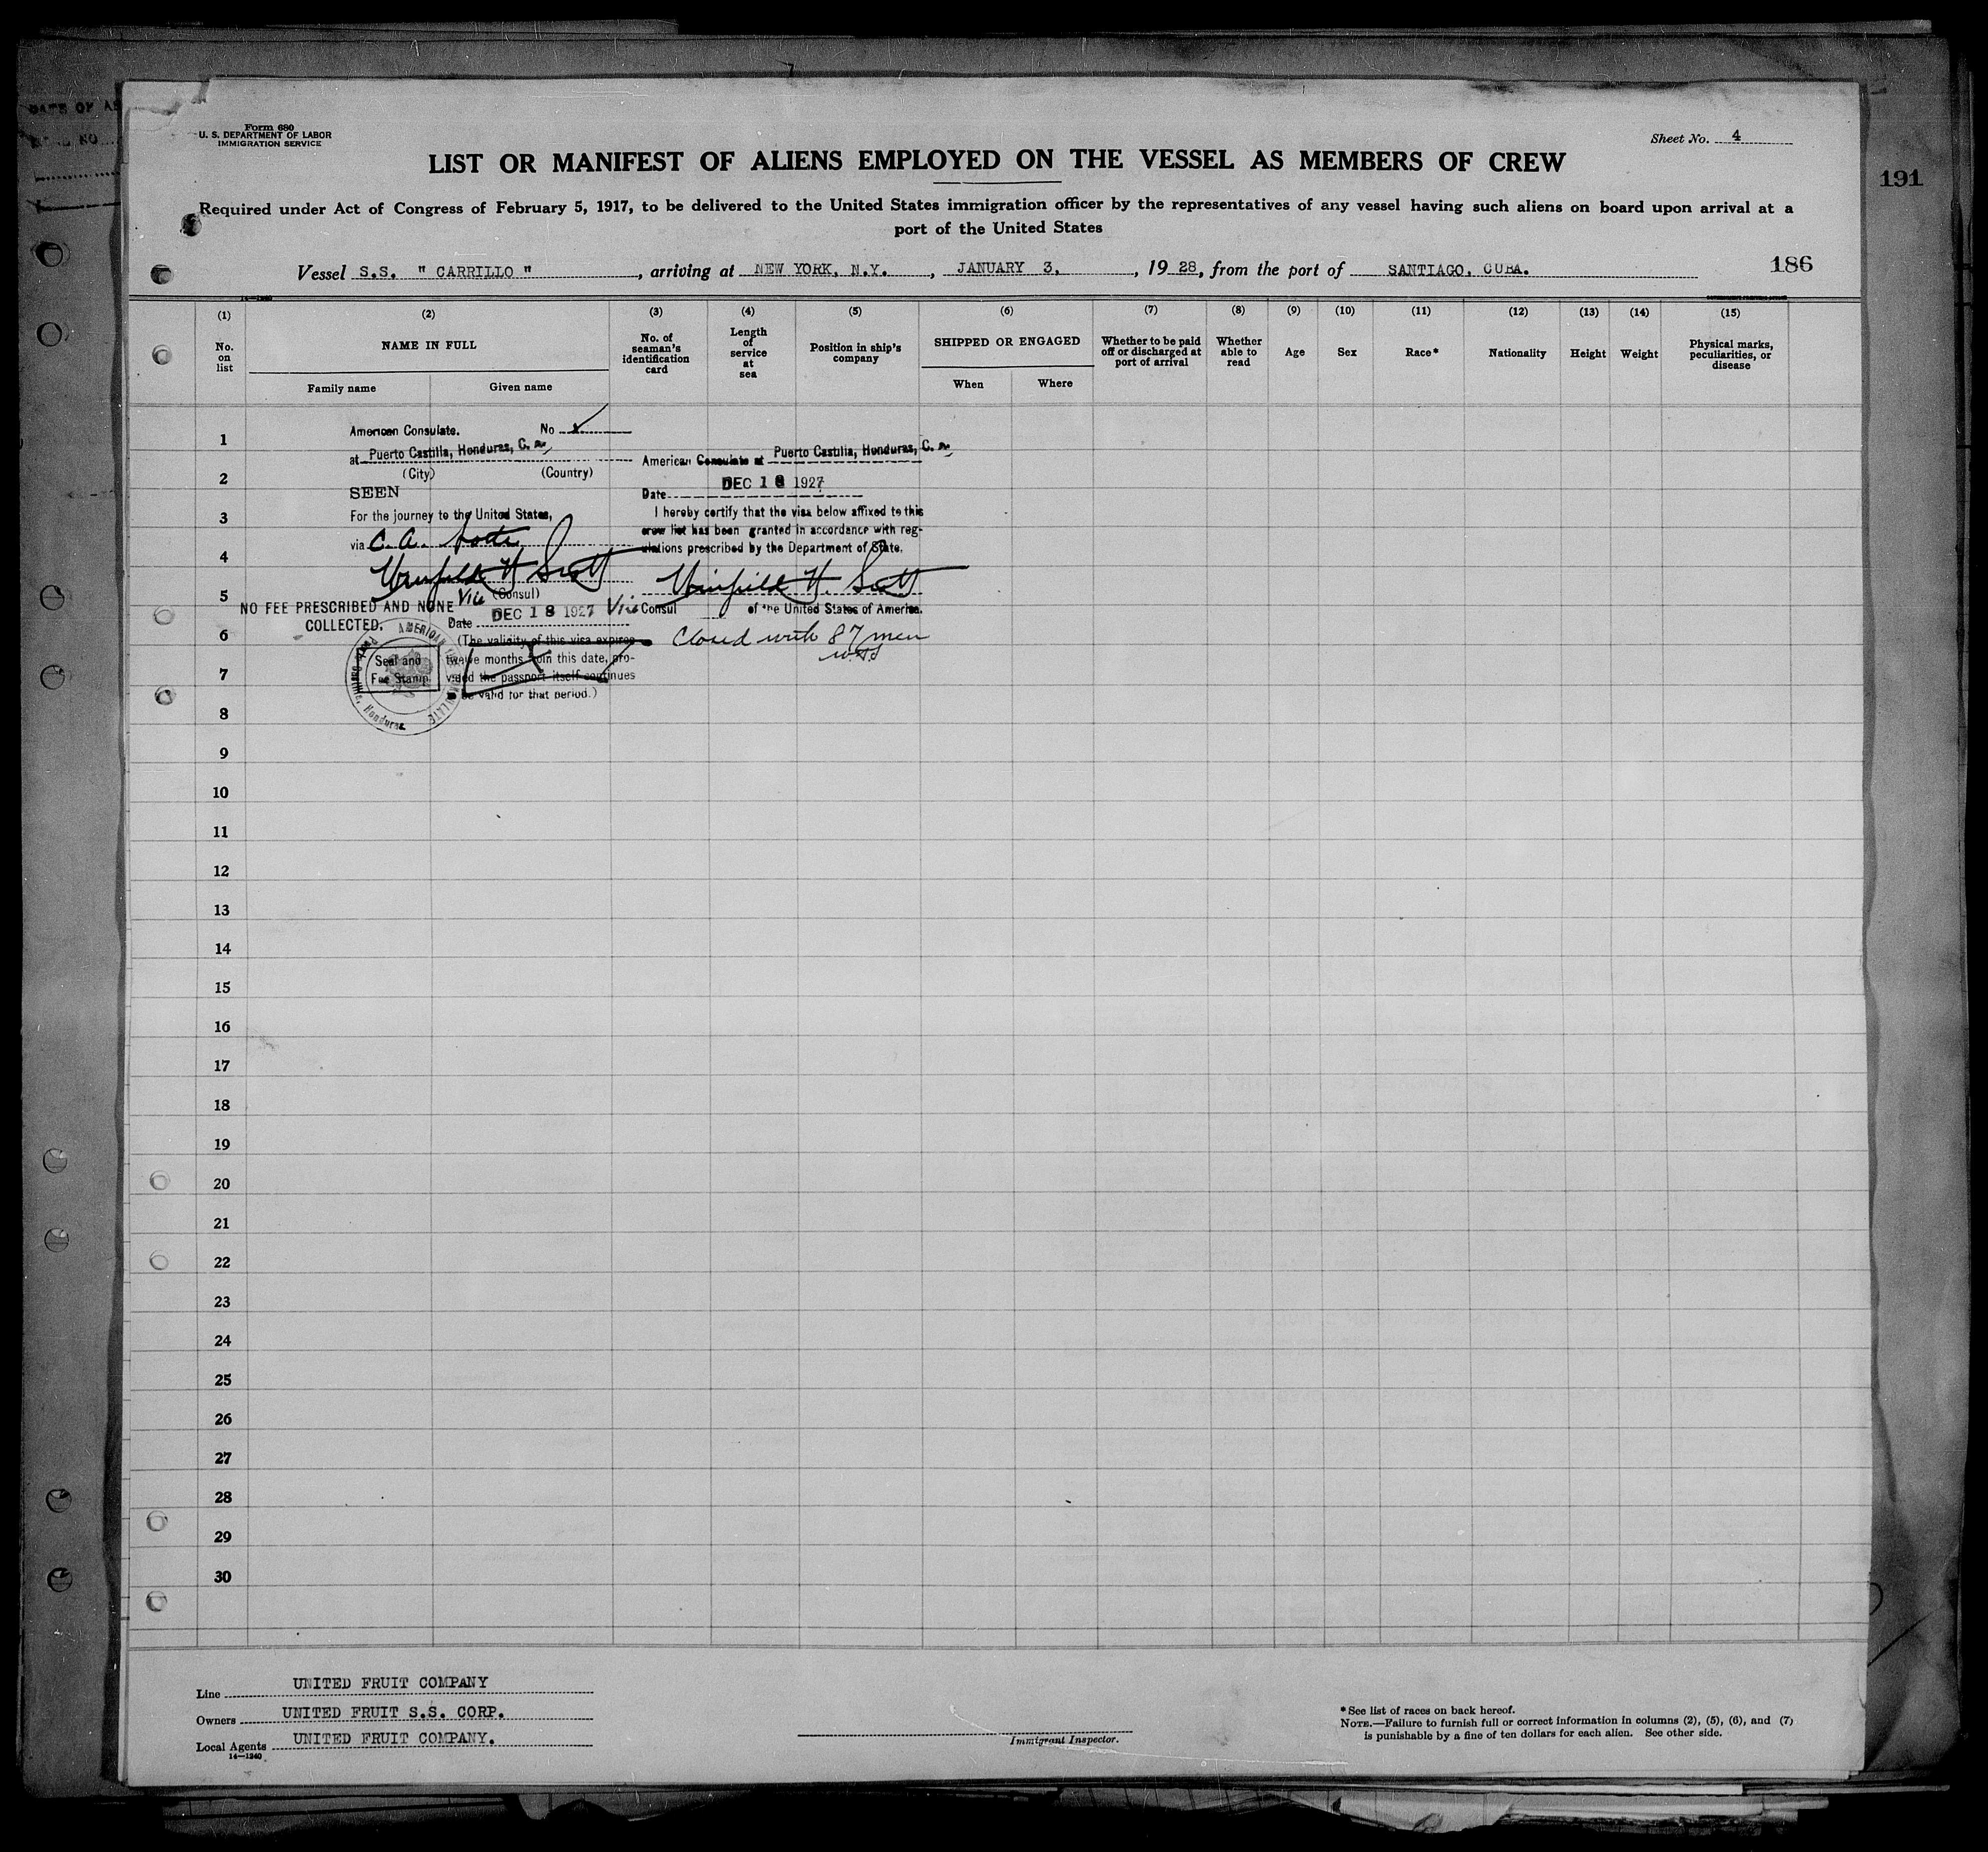 Form 680
U. S. DEPARTMENT OF LABOR
IMMIGRATION SERVICE
Sheet No. 4
LIST OR MANIFEST OF ALIENS EMPLOYED ON THE VESSEL AS MEMBERS OF CREW
191
Required under Act of Congress of February 5, 1917, to be delivered to the United States immigration officer by the representatives of any vessel having such aliens on board upon arrival at a
port of the United States
Vessel S.S. " CARRILLO ", arriving at NEW YORK, N.Y., JANUARY 3, 1928, from the port of SANTIAGO, CUBA.
186
(1) (2) (3) (4) (5) (6) (7) (8) (9) (10) (11) (12) (13) (14) (15)
No. on list
NAME IN FULL
Family name
Given name
No. of seaman's identification card
Length of service at sea
Position in ship's company
SHIPPED OR ENGAGED
When
Where
Whether to be paid off or discharged at port of arrival
Whether able to read
Age
Sex
Race*
Nationality
Height
Weight
Physical marks, peculiarities, or disease
American Consulate. No
at Puerto Castilla, Honduras, C. A.
(City) (Country)
SEEN
For the journey to the United States,
via C. A. Ports
Winfield H Scott
Vice (Consul)
NO FEE PRESCRIBED AND NONE
COLLECTED.
Date DEC 18 1927
(The validity of this visa expires
twelve months from this date, pro-
vided the passport itself continues
to be valid for that period.)
Seal and
Fee Stamp
AMERICAN CONSULATE
Puerto Castilla, Honduras
American Consulate at Puerto Castilla, Honduras, C. A.
Date DEC 18 1927
I hereby certify that the visa below affixed to this
crew list has been granted in accordance with reg-
ulations prescribed by the Department of State.
Winfield H. Scott
Vice Consul of the United States of America.
Closed with 87 men
WHS
1
2
3
4
5
6
7
8
9
10
11
12
13
14
15
16
17
18
19
20
21
22
23
24
25
26
27
28
29
30
Line UNITED FRUIT COMPANY
Owners UNITED FRUIT S.S. CORP.
Local Agents UNITED FRUIT COMPANY.
14—1240
Immigrant Inspector.
*See list of races on back hereof.
NOTE.—Failure to furnish full or correct information in columns (2), (5), (6), and (7)
is punishable by a fine of ten dollars for each alien. See other side.